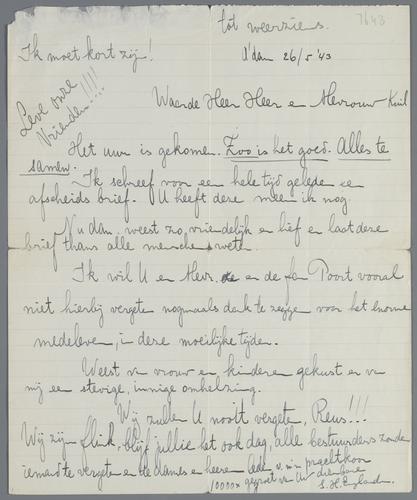 tot weerziens.
7643
Ik moet kort zijn!
A'dam 26/5 '43
Leve onze
vrienden!!!!
Waarde Heer Heer en Mevrouw
Het uur is gekomen. Zoo is het goed. Alles te
samen.
Ik schreef voor een hele tijd geleden een
afscheids brief. U heeft deze meen ik nog.
Nu dan, weest zo, vriendelijk en lief en laat deze
brief thans alle mensen weten.
Ik wil U en Mevr. en de fam Poort vooral
niet hierbij vergeten nogmaals dank te zeggen voor het enorme
medeleven, in deze moeilijke tijden.
Weest v vrouw en kinderen gekust en v
mij een stevige, innige omhelzing.
Wij zullen U nooit vergeten, Reus!!!
Wij zijn flink, blijf jullie het ook dag, alle bestuurders zonder
iemand te vergeten en de dames en heeren leden v. m'n prachtkoor
10000x gegroet van Uw
S. H. Englander.